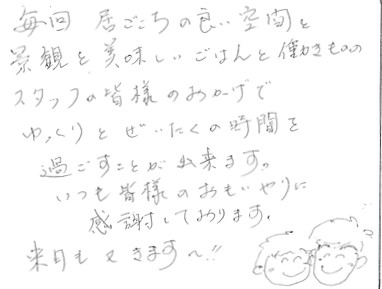 毎回 居ごこちの良い空間と
景観と美味しいごはんと働きものの
スタッフの皆様のおかげで
ゆっくりとぜいたくの時間を
過ごすことが出来ます。
いつも皆様のおもいやりに
感謝しております。
来月も又きます〜!!